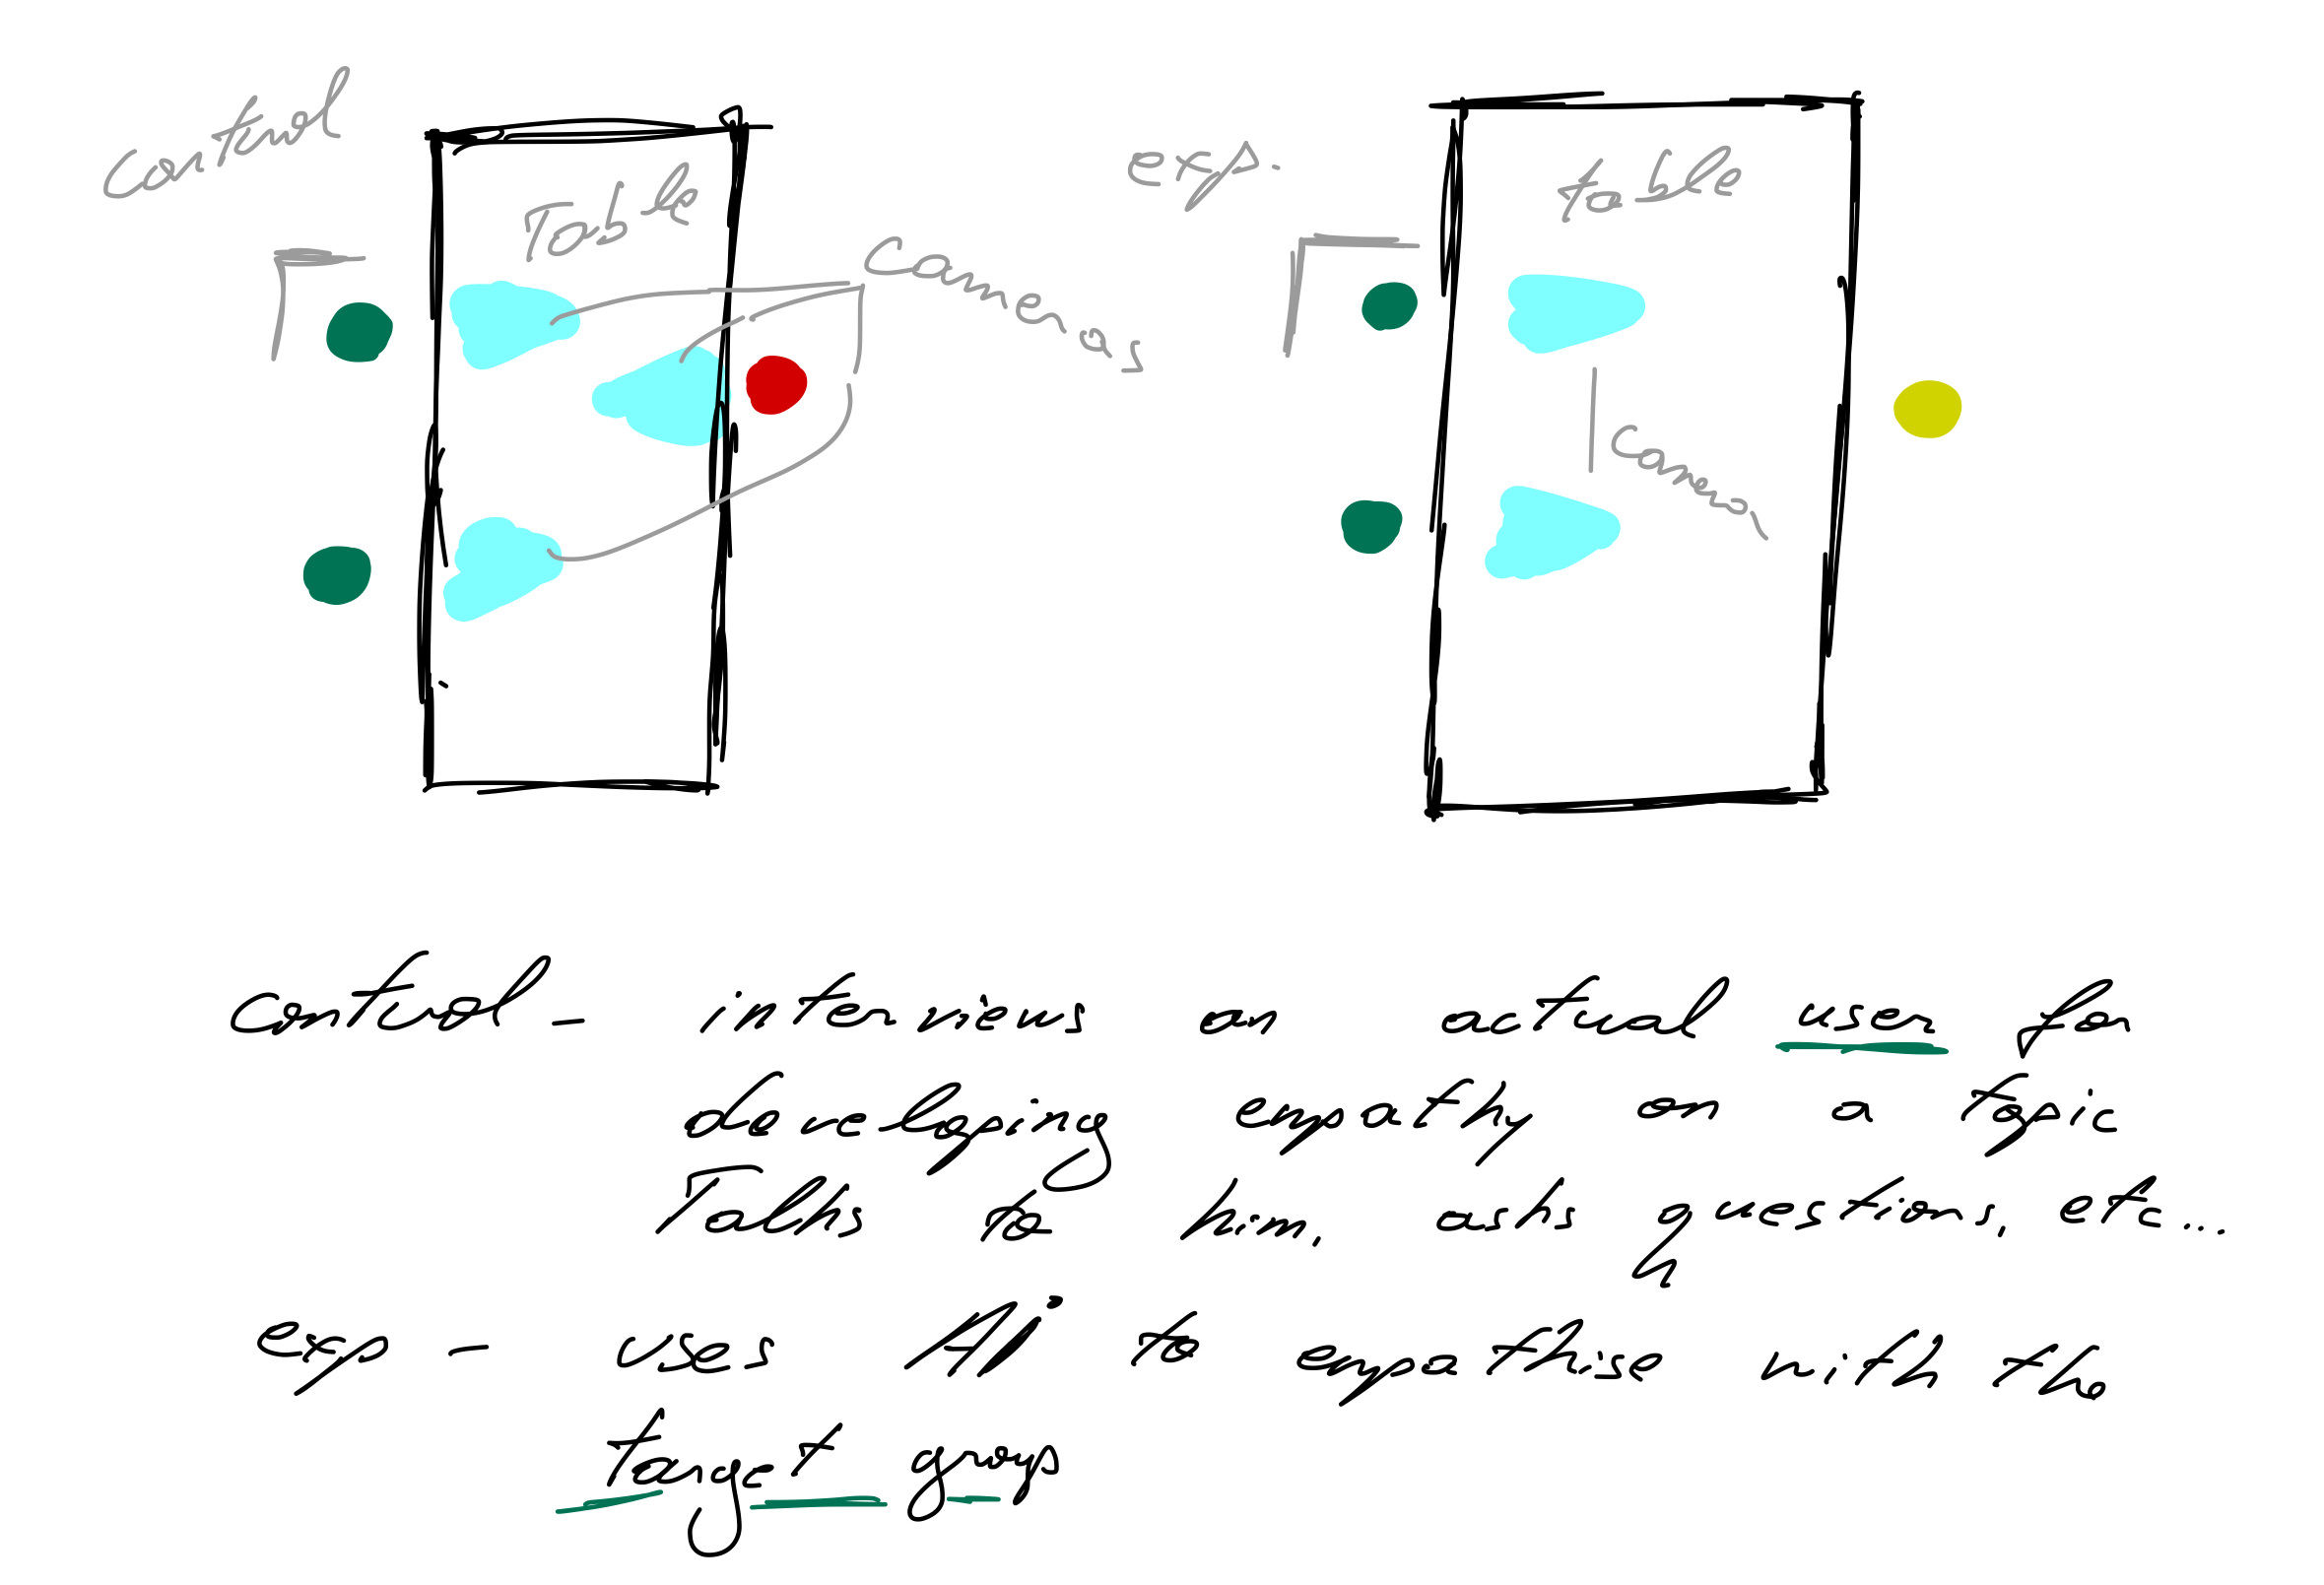 control
Table
Cameras
exp.
table
Camera
control - interviews an actual user for
developing empathy on a topic
Talks to him, asks questions, etc...
exp - uses AI to empathise with the
target group